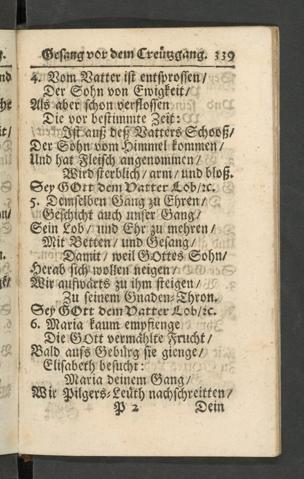 Gesang vor dem Creützgang. 339
4. Vom Vatter ist entsprossen/
Der Sohn von Ewigkeit/
Als aber schon verflossen
Die vor bestimmte Zeit:
Ist auß deß Vatters Schooß/
Der Sohn vom Himmel kommen/
Und hat Fleisch angenommen/
Wird sterblich/ arm/ und bloß.
Sey GOtt dem Vatter Lob/ꝛc.
5. Demselben Gang zu Ehren/
Geschicht auch unser Gang/
Sein Lob/ und Ehr zu mehren/
Mit Betten/ und Gesang/
Damit/ weil GOttes Sohn/
Herab sich wollen neigen/
Wir aufwärts zu ihm steigen/
Zu seinem Gnaden-Thron.
Sey GOtt dem Vatter Lob/ꝛc.
6. Maria kaum empfienge
Die GOtt vermählte Frucht/
Bald aufs Gebürg sie gienge/
Elisabeth besucht:
Maria deinem Gang/
Wir Pilgers-Leüth nachschreitten/
P 2 Dein